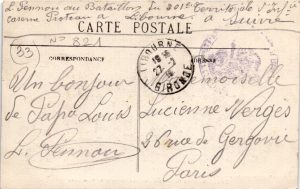 L. Pennou au Bataillon du 201e Territorial de l'Inf.
caserne Proteau à Libourne à Suivre
No 821
CARTE POSTALE
33
CORRESPONDANCE
ADRESSE
LIBOURNE
27-2
GIRONDE
Un bonjour
de Papa Louis
L. Pennou
Mademoiselle
Lucienne Vergès
36 rue de Gergovie
Paris